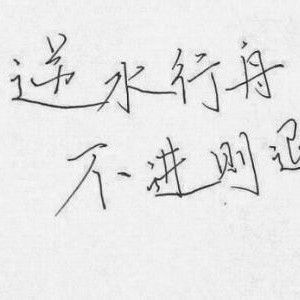 逆水行舟
不进则退